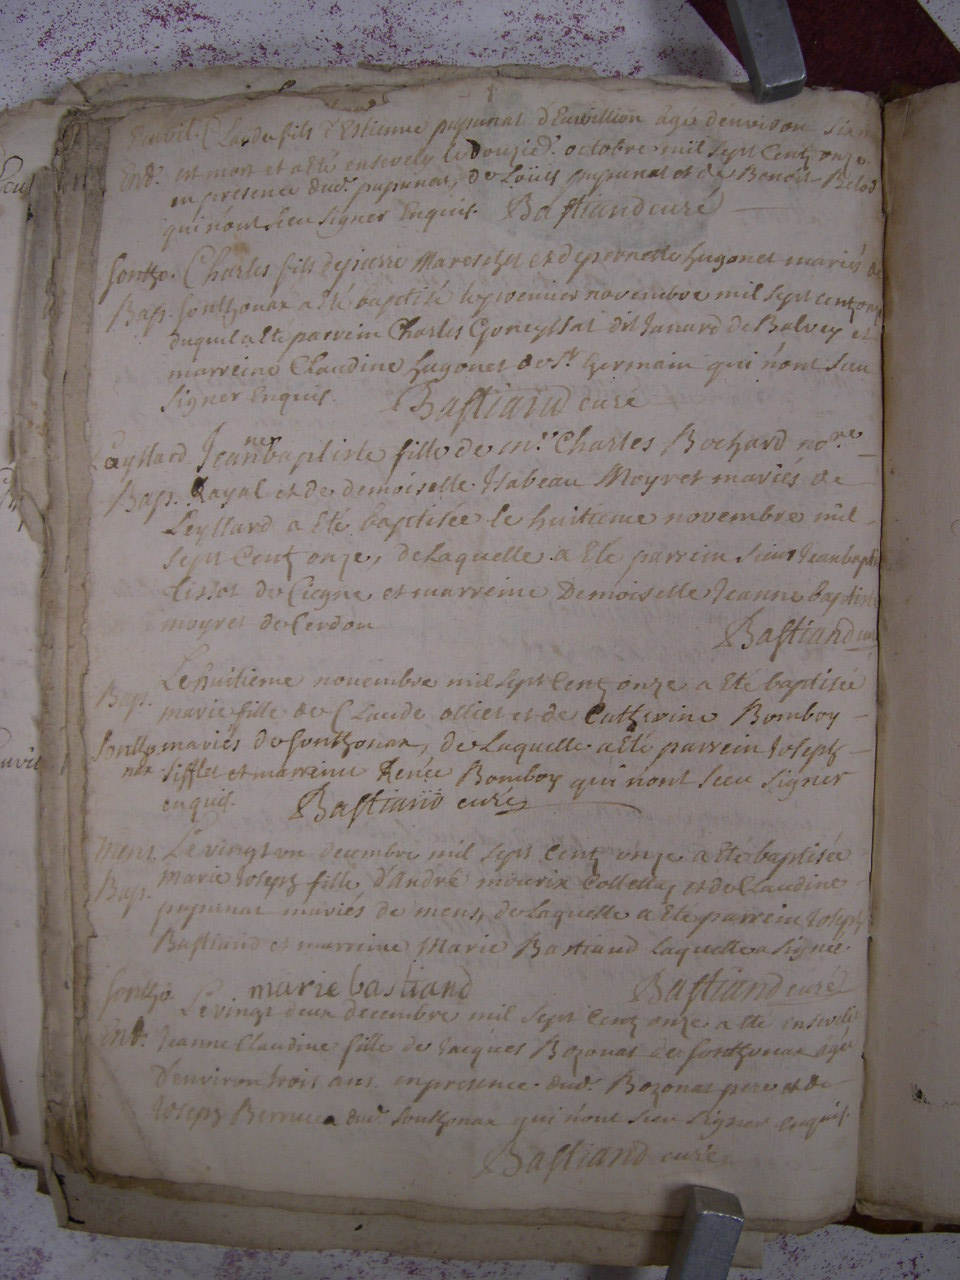 Claude fils d'Estienne pupunat d'Euvillion âgé d'environ six
Ent. est mort et a été ensevely le douzie. octobre mil sept Centz onze
en presence dud. pupunat, de Louis pupunat et de Benoit
qui n'ont sceu signer Enquis. Bastiand curé
Sontho. Charles fils de pierre Mareschet et de pernette hugonet mariés de
Bap. Sonthonax a été baptisé le premier novembre mil sept centz onze
duquel a été parrein Charles Goneyssat dit Janard de Balvey et
marreine Claudine hugonet de St. Germain qui n'ont sceu
signer Enquis. Bastiand curé
Leyssard Jeannebaptiste fille de mr. Charles Bochard nore.
Bap. Rayal et de demoiselle Isabeau Moyret mariés de
Leyssard a été baptisée le huitieme novembre mil
sept Centz onze, de Laquelle a été parrein sieur Jeanbapt
tissot de Ciegne et marreine Demoiselle Jeanne baptiste
moyret de Cerdon Bastiand curé
Le huitieme novembre mil sept Centz onze a été baptisée
Bap. marie fille de Claude ollier et de Catherine Bomboy
Sontho mariés de Sonthonax, de Laquelle a été parrein Joseph
nax sifflet et marreine Renée Bomboy qui n'ont sceu signer
enquis. Bastiand curé
Mens. Le vingt un decembre mil sept Centz onze a été baptisée
Bap. Marie Joseph fille d'André mourix Collettaz et de Claudine
pupunat mariés de mens, de Laquelle a été parrein Joseph
Bastiand et marreine Marie Bastiand Laquelle a signée.
marie bastiand Bastiand curé
Sontho Le vingt deux decembre mil sept Centz onze a été ensevelie
Ent. Jeanne Claudine fille de Jacques Bozonat de Sonthonax agée
D'environ trois ans en presence dud. Bozonat pere et de
Joseph dud. Sonthonax qui n'ont sceu signer enquis.
Bastiand curé